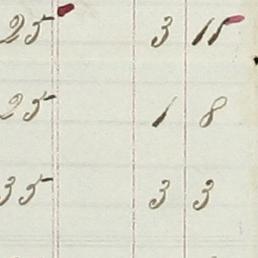 25 3 11
25 1 8
35 3 3